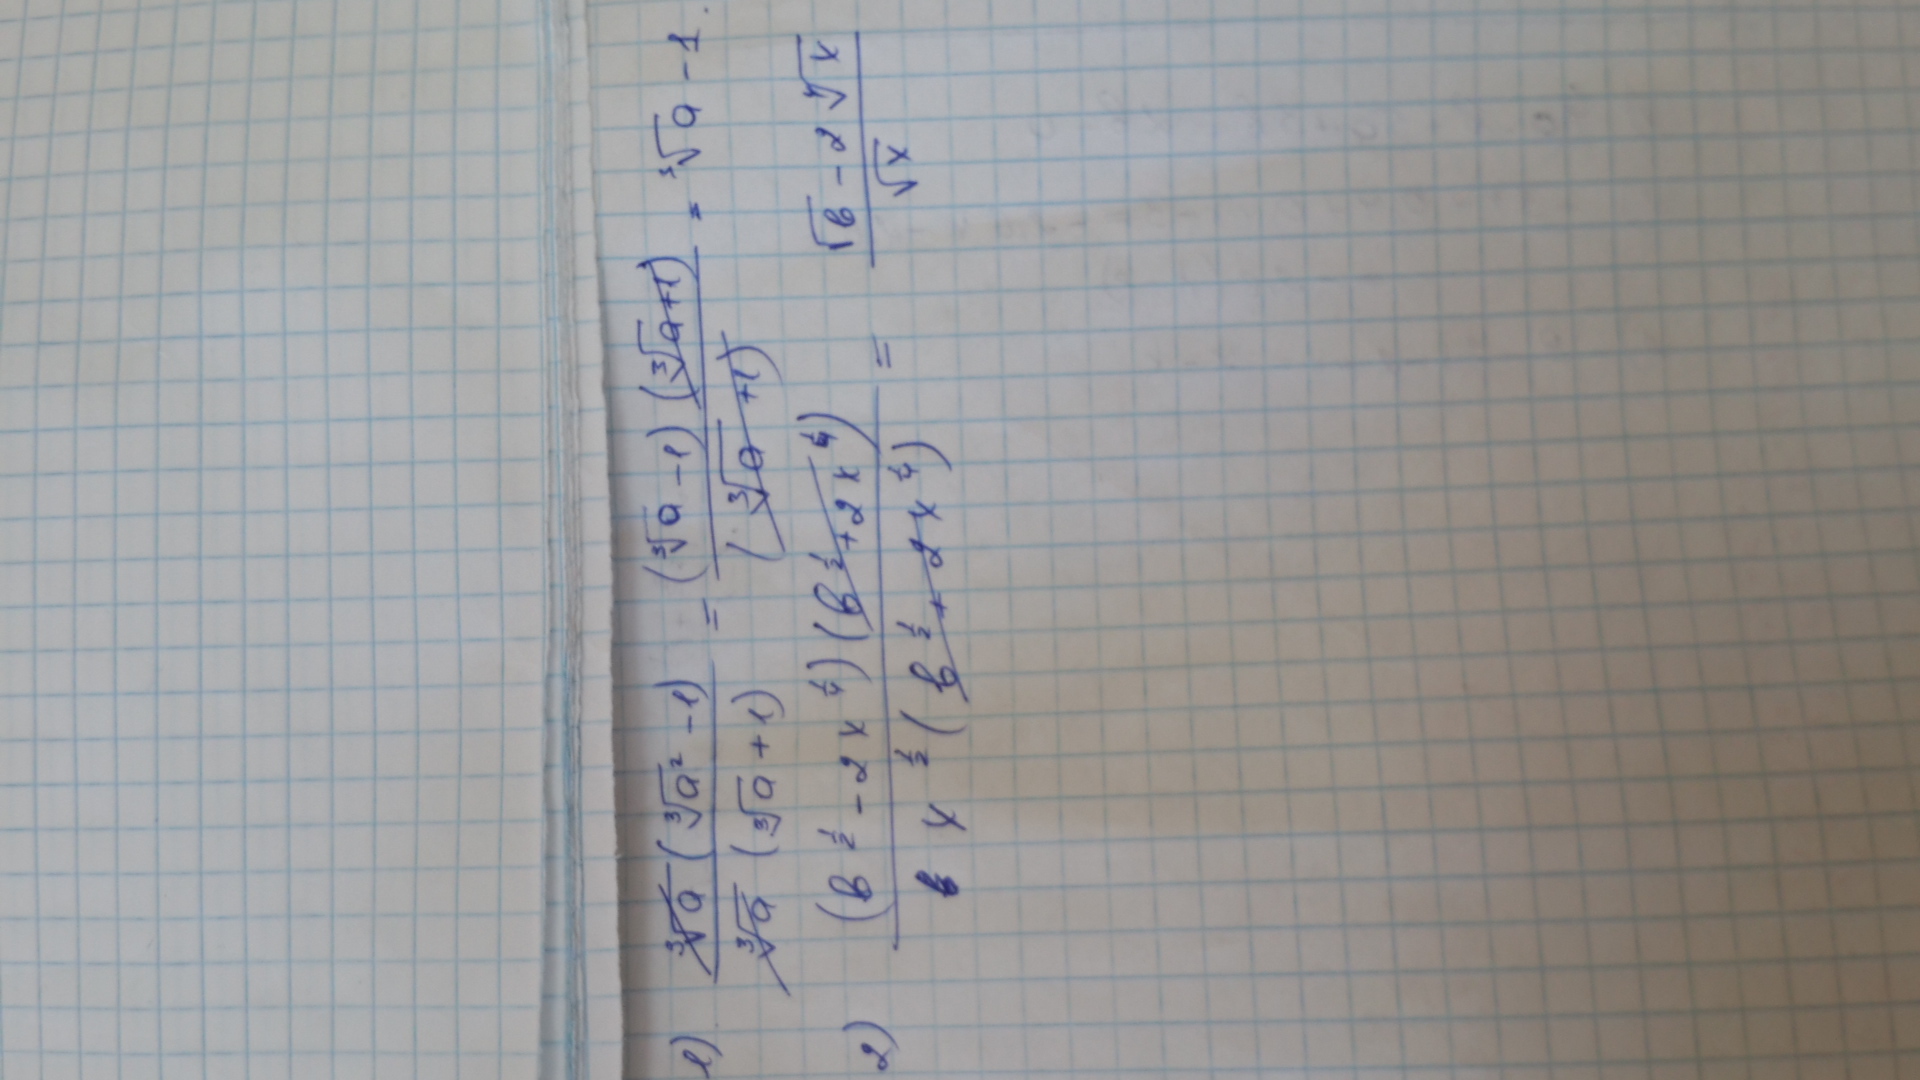 1) ∛a (∛a² - 1) / ∛a (∛a + 1) = (∛a - 1) (∛a + 1) / (∛a + 1) = ∛a - 1.
2) (b^½ - 2x^¼) (b^½ + 2x^¼) / x^½ (b^½ + 2x^¼) = √b - 2∜x / √x